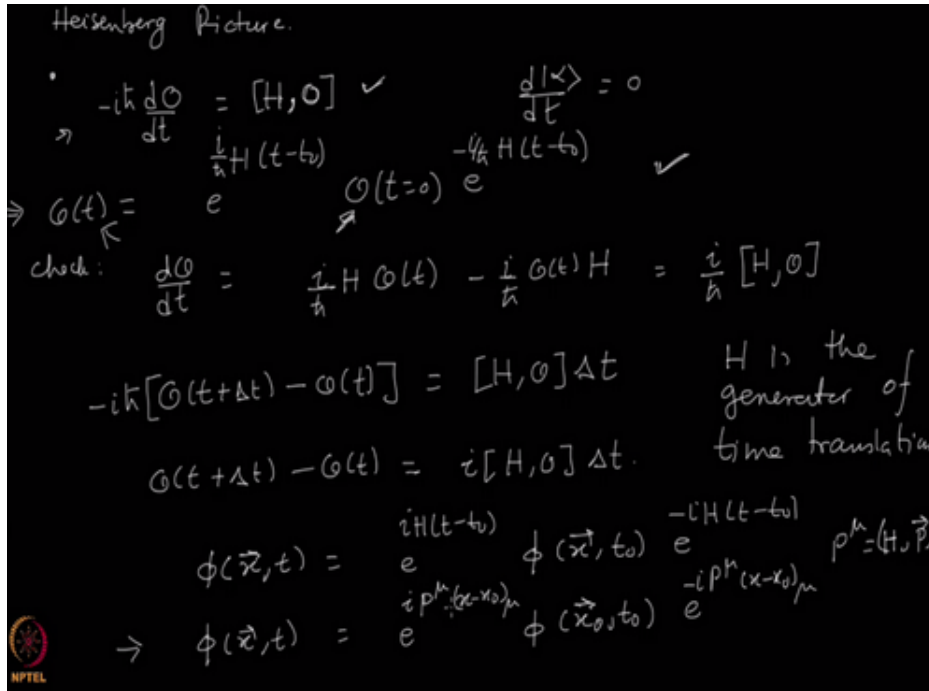 Heisenberg Picture.
-iℏ dO/dt = [H,O] ✓ d|α>/dt = 0
⇒ O(t) = e^{i/ℏ H(t-t₀)} O(t=0) e^{-i/ℏ H(t-t₀)} ✓
check: dO/dt = i/ℏ H O(t) - i/ℏ O(t) H = i/ℏ [H,O]
-iℏ[O(t+Δt) - O(t)] = [H,O]Δt
H is the
generator of
time translation
O(t+Δt) - O(t) = i[H,O]Δt.
ϕ(x⃗,t) = e^{iH(t-t₀)} ϕ(x⃗,t₀) e^{-iH(t-t₀)} P^μ=(H,P⃗)
→ ϕ(x⃗,t) = e^{iP^μ·(x-x₀)_μ} ϕ(x⃗₀,t₀) e^{-iP^μ(x-x₀)_μ}
NPTEL